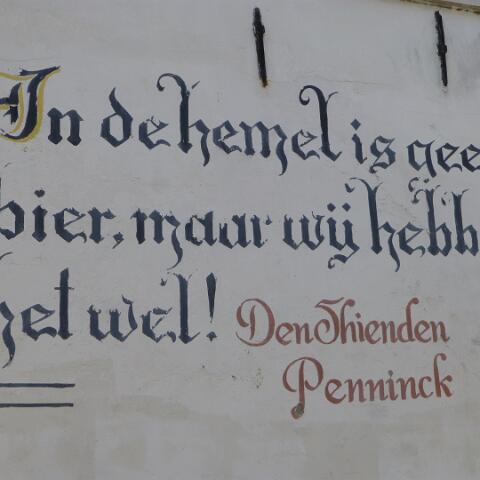 In de hemel is gee
bier, maar wij hebb
het wel!
Den Thienden
Penninck